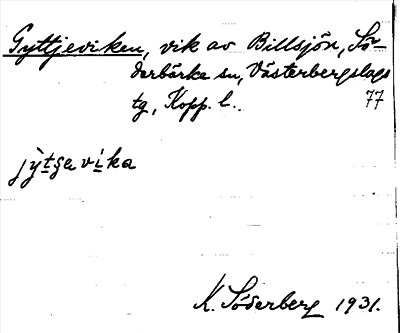 Gyttjeviken, vik av Billsjön, Sö-
derbärke sn, Västerbergslags
tg, Kopp. l. 77
jẏtʂavi̇ka
K. Söderberg 1931.